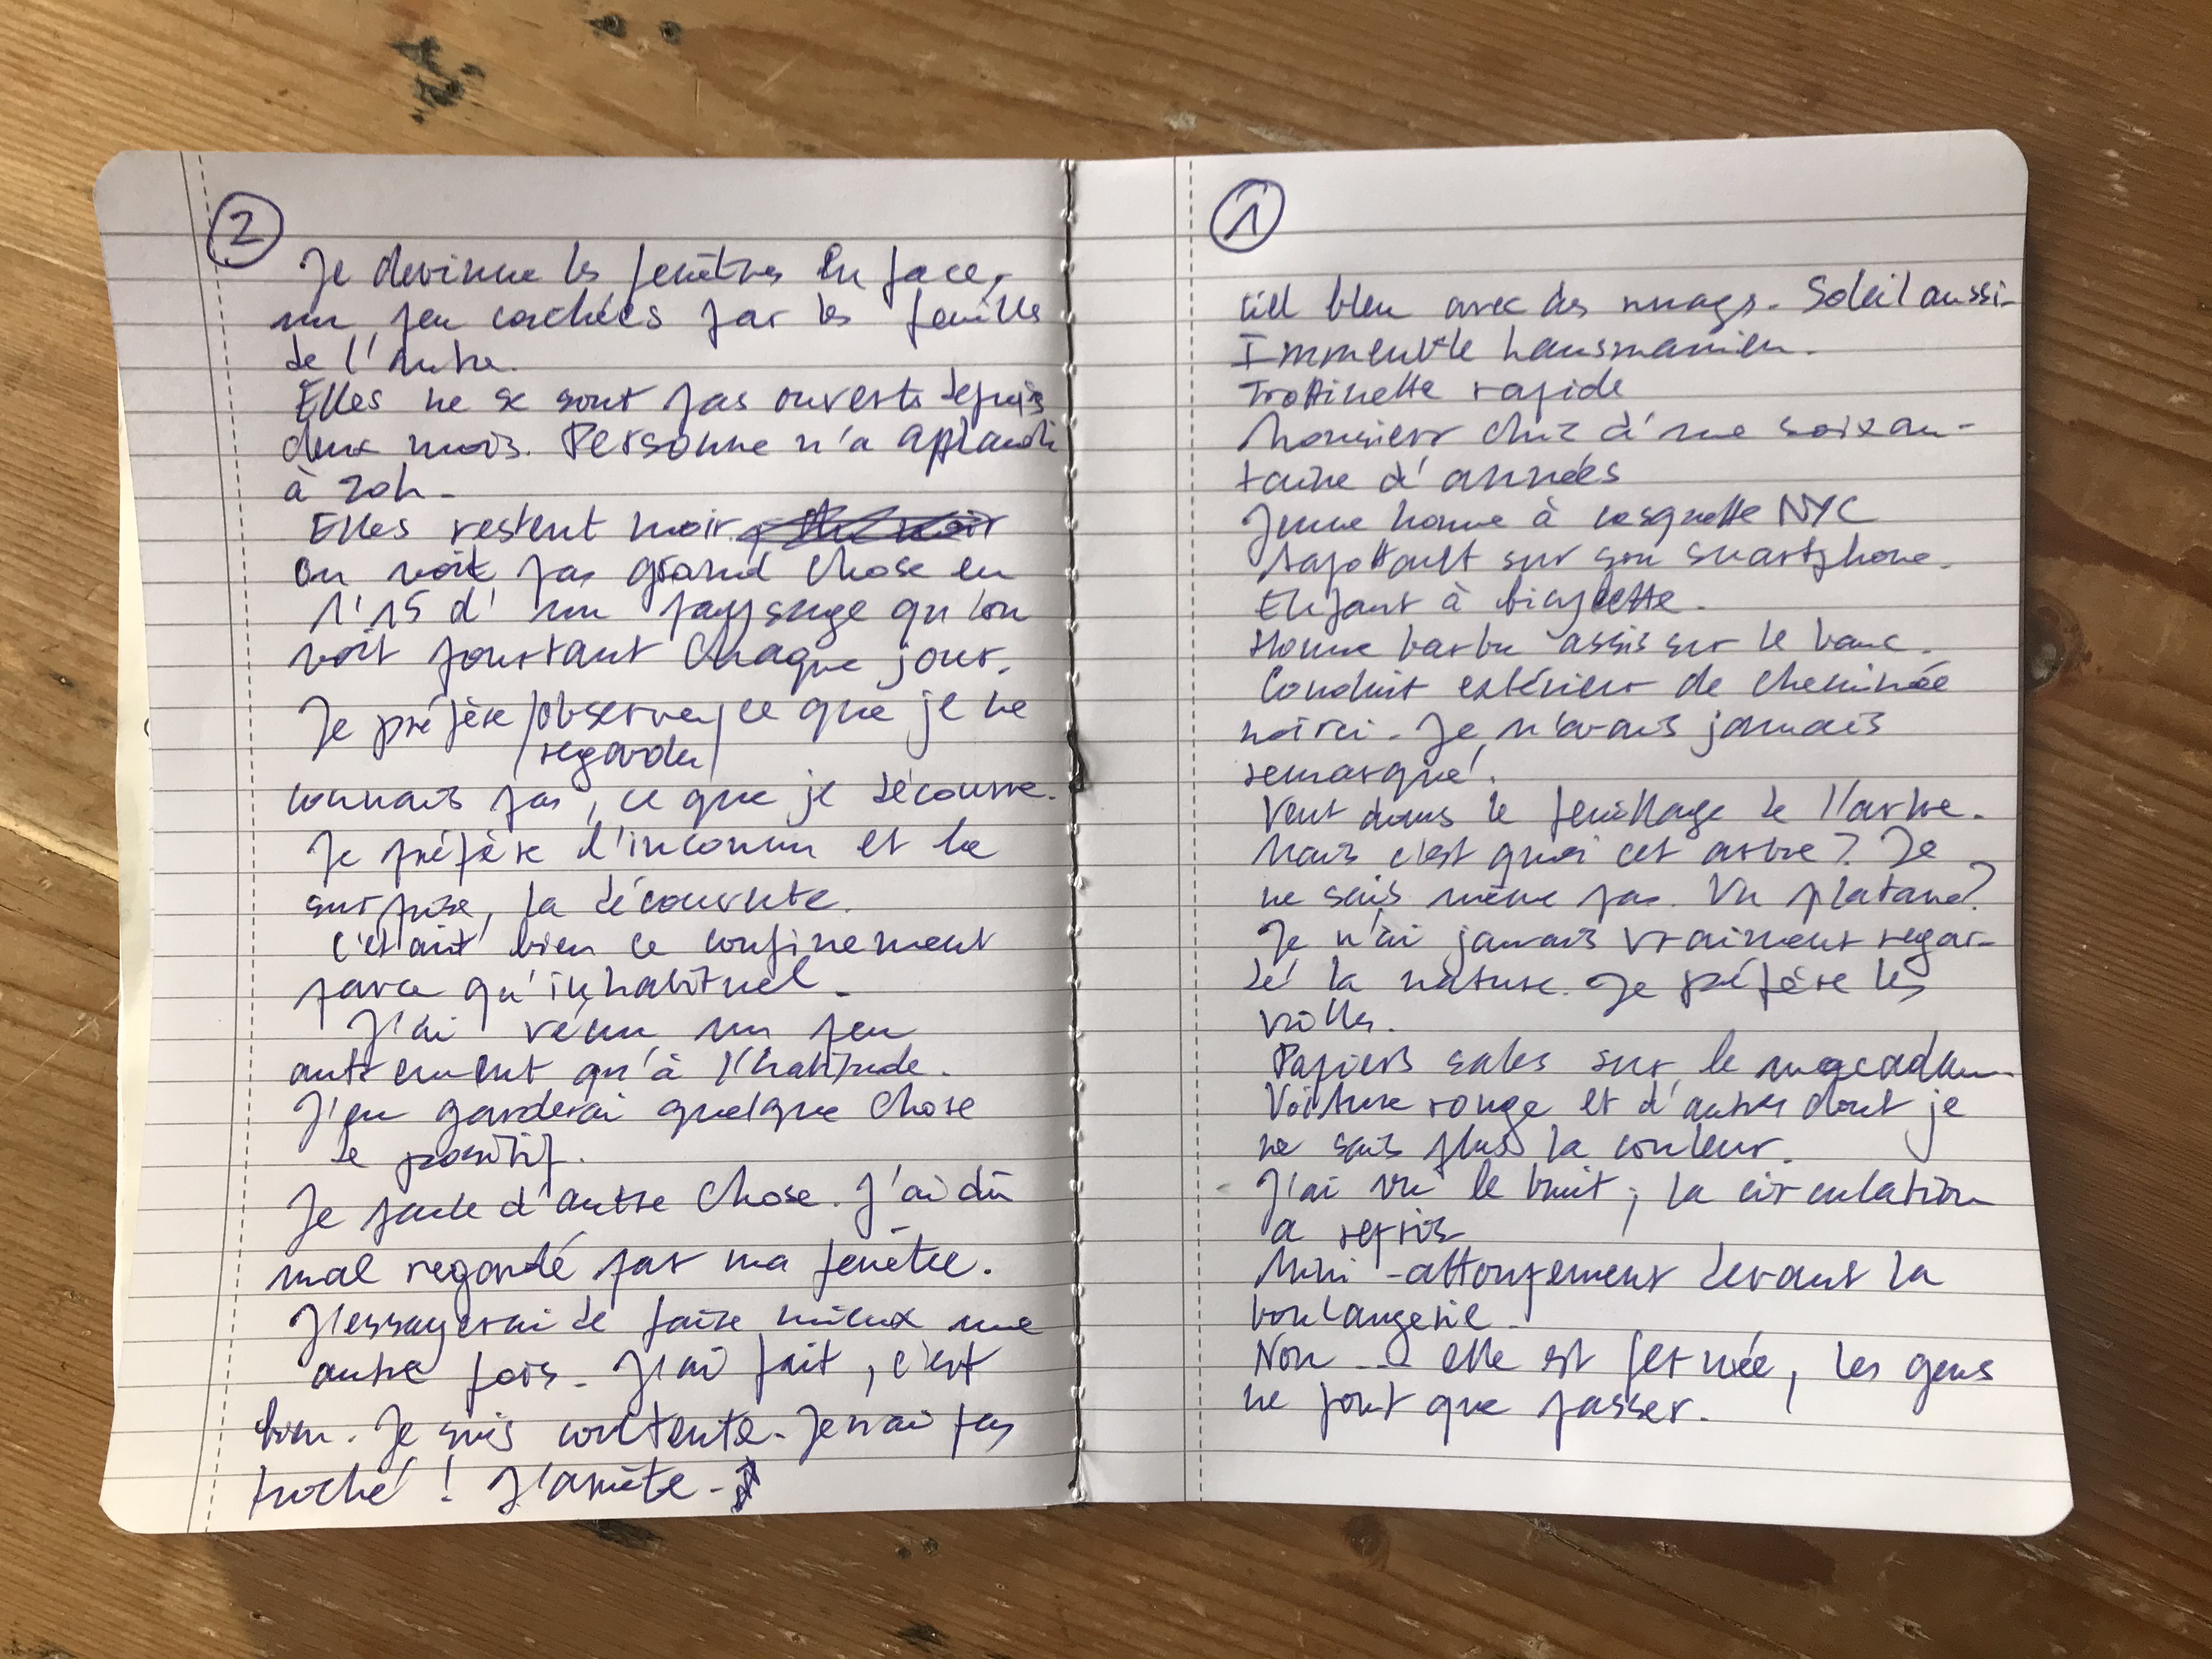 1
Ciel bleu avec des nuages. Soleil aussi.
Immeuble hausmannien.
Trottinette rapide
Monsieur chic d'une soixan-
taine d'années
Jeune homme à casquette NYC
tapottant sur son smartphone.
Enfant à bicyclette.
Homme barbu assis sur le banc.
Conduit extérieur de cheminée
noirci. Je n'avais jamais
remarqué.
Vent dans le feuillage de l'arbre.
Mais c'est quoi cet arbre ? Je
ne sais même pas. Un platane ?
Je n'ai jamais vraiment regar-
dé la nature. Je préfère les
villes.
Papiers sales sur le macadam.
Voiture rouge et d'autres dont je
ne sais plus la couleur.
J'ai vu le bruit ; la circulation
a repris
Mini-attoupement devant la
boulangerie.
Non... elle est fermée, les gens
ne font que passer.
2
Je devinne les fenêtres en face,
un peu cachées par les feuilles
de l'arbre.
Elles ne se sont pas ouvertes depuis
deux mois. Personne n'a applaudi
à 20h.
Elles restent noir.
On voit pas grand chose en
1'15 d'un paysage qu'on
voit pourtant chaque jour.
Je préfère /observer/ ce que je ne
/regarder/
connais pas, ce que je découvre.
Je préfère l'inconnu et la
surprise, la découverte.
C'était bien ce confinement
parce qu'inhabituel.
J'ai vécu un peu
autrement qu'à l'habitude.
J'en garderai quelque chose
de positif.
Je parle d'autre chose. J'ai dû
mal regardé par ma fenêtre.
J'essayerai de faire mieux une
autre fois. J'ai fait, c'est
bien. Je suis contente. Je n'ai pas
triché ! J'arrête.